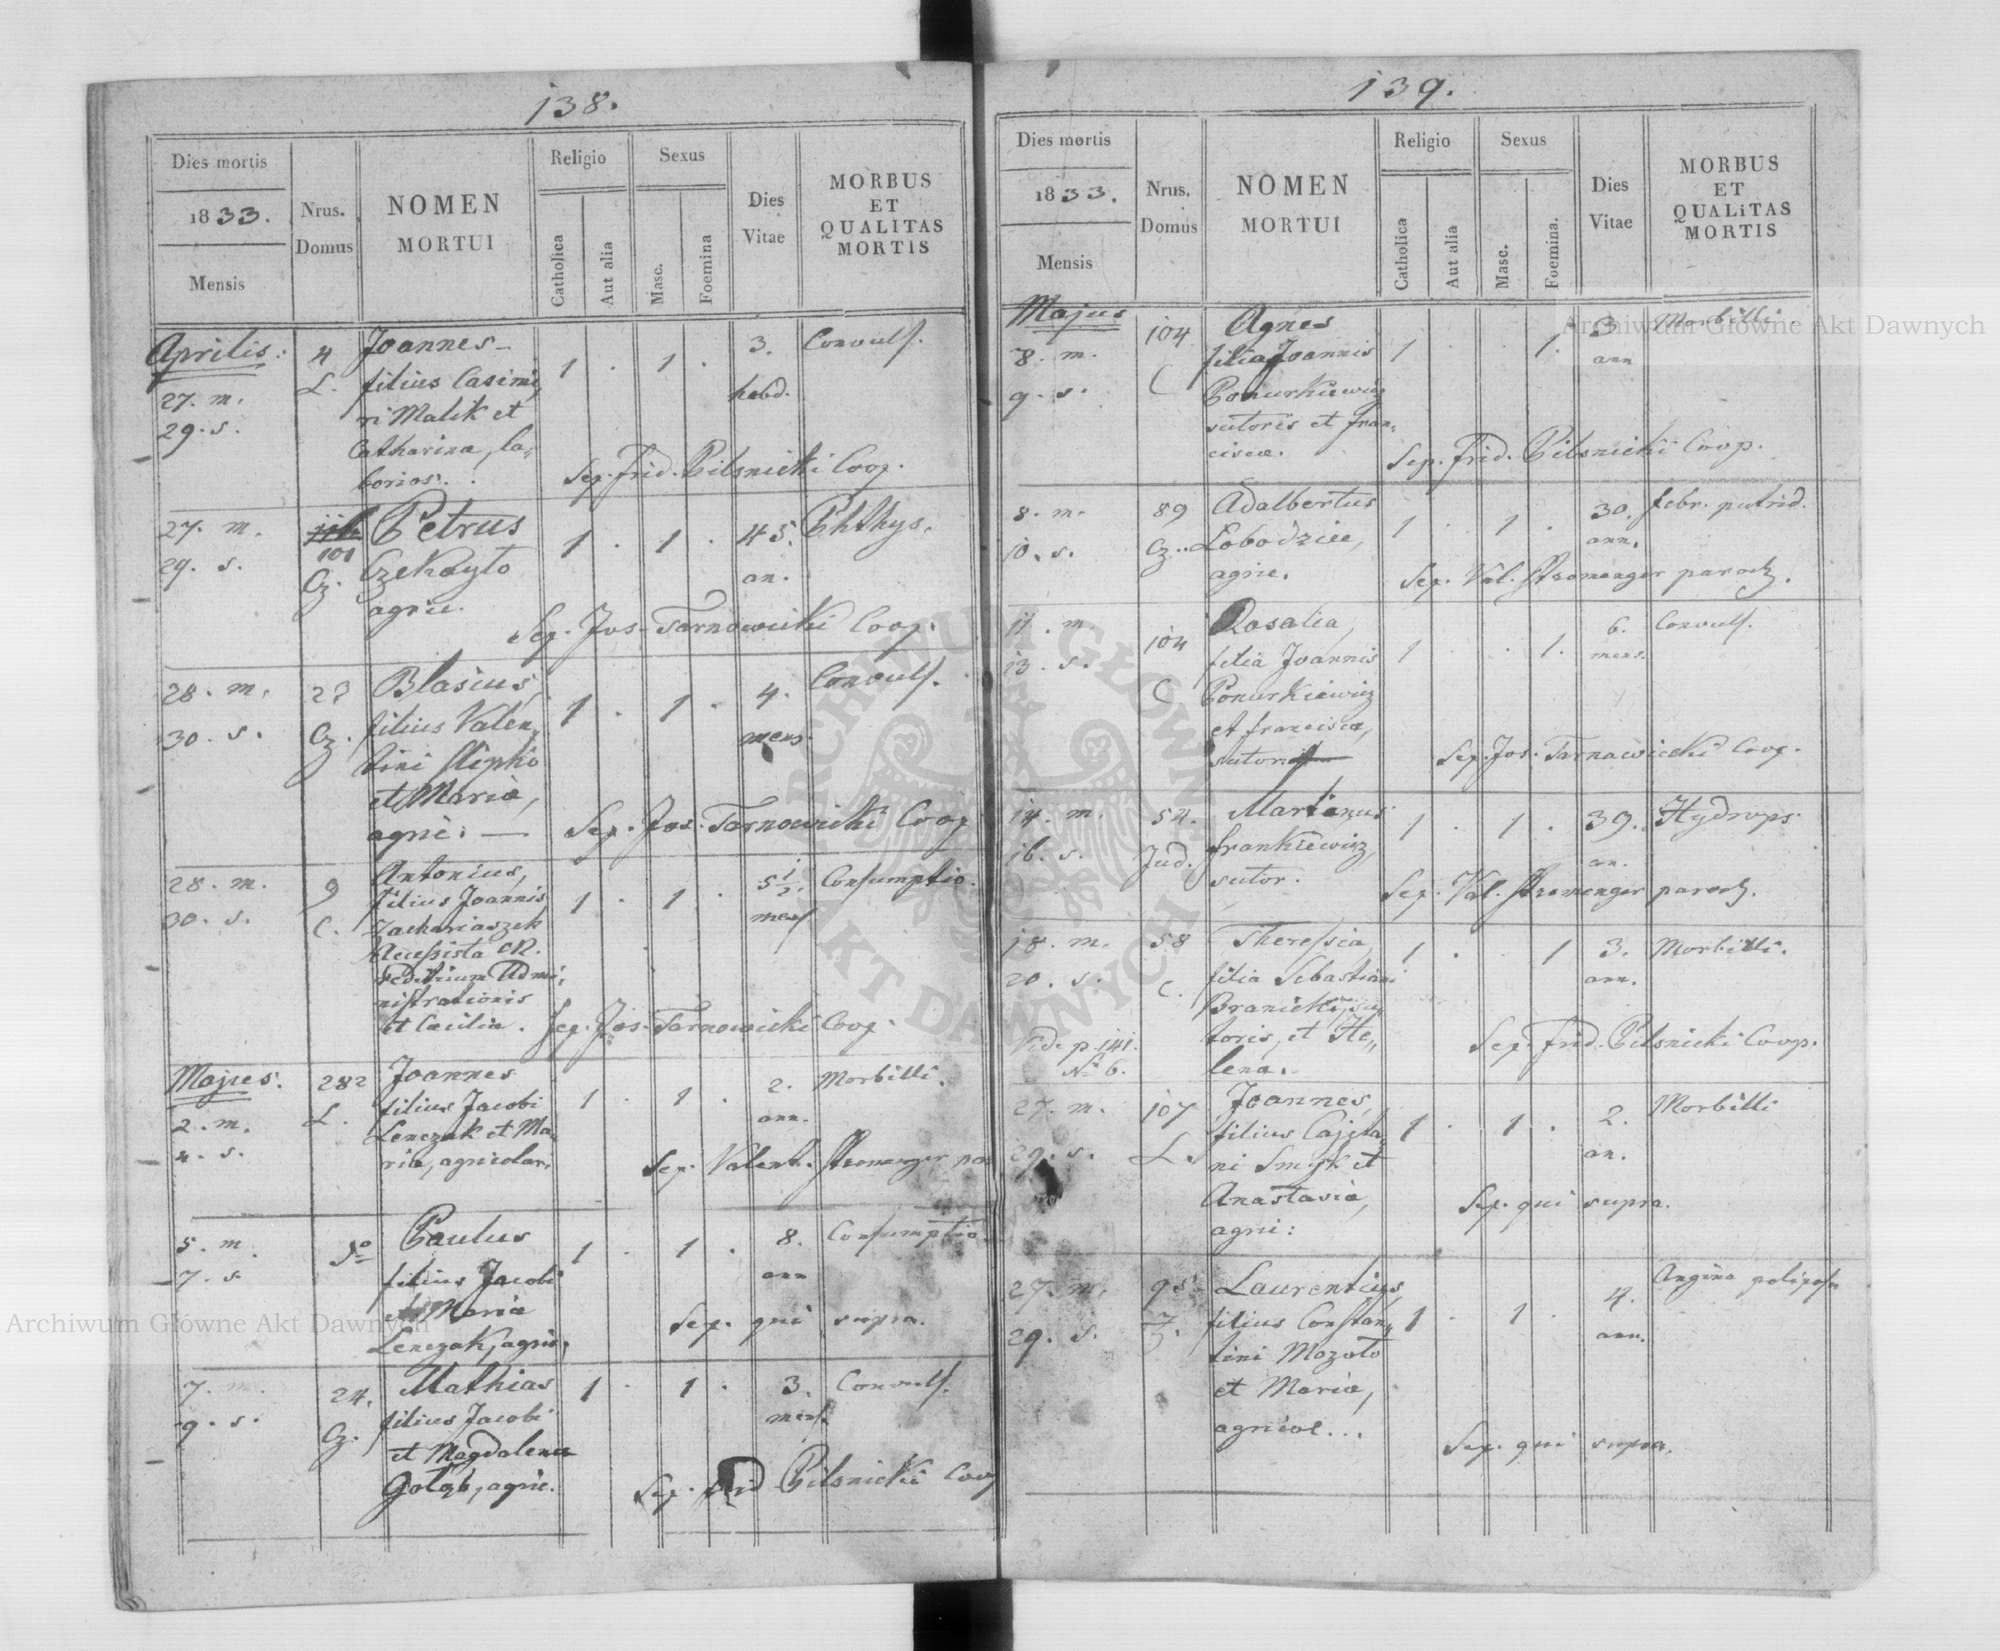 138.
Dies mortis
1833.
Mensis
Nrus.
Domus
NOMEN
MORTUI
Religio
Catholica
Aut alia
Sexus
Masc.
Foemina
Dies
Vitae
MORBUS
ET
QUALITAS
MORTIS
Aprilis:
27. m.
29. s.
4
L.
Joannes
filius Casimi,,
ri Malik et
Catharina, la,,
borios.
1 . 1 .
3.
hebd.
Convuls.
Sep. Frid. Pilsnicki Coop.
27. m.
29. s.
101
Cz.
Petrus
Czekayło
agric.
1 . 1 .
45.
an.
Phthys.
Sep. Jos. Tarnowiecki Coop.
28. m.
30. s.
Cz.
Blasius,
filius Valen,,
tini
et Maria,
agric. —
1 . 1 .
4.
mens.
Convuls.
Sep. Jos. Tarnowiecki Coop
28. m.
30. s.
9
C.
Antonius,
filius Joannis
Zachariaszek
Accessista
Admi,,
nistrationis
et Cacilia.
1 . 1 .
5 1/2.
mens
Consumptio.
Sep. Jos. Tarnowiecki Coop.
Majus.
2. m.
4. s.
282
L.
Joannes
filius Jacobi
Lenczak et Ma,,
ria, agricolar.
1 . 1 .
2.
ann.
Morbilli.
Sep. Valent. Stromenger par
5. m.
7. s.
Paulus
filius Jacobi
et Maria
Lenczak, agric.
1 . 1 .
8.
ann
Consumptio.
Sep. qui supra.
7. m.
9. s.
24.
Cz.
Mathias
filius Jacobi
et Magdalena
Gołąb, agric.
1 . 1 .
3.
mens.
Convuls.
Sep. Frid Pilsnicki Coop
139.
Dies mortis
1833.
Mensis
Nrus.
Domus
NOMEN
MORTUI
Religio
Catholica
Aut alia
Sexus
Masc.
Foemina.
Dies
Vitae
MORBUS
ET
QUALITAS
MORTIS
Majus
8. m.
9. s.
104
C
Agnes
filia Joannis
Ponurkiewicz
sutoris et Fran,,
cisca.
1 . . 1.
3
ann
Morbilli.
Sep. Frid. Pilsnicki Coop.
8. m.
10. s.
89
Cz.
Adalbertus
Łobodziec,
agric.
1 . 1 .
30.
ann.
febr. putrid.
Sep. Val. Stromenger paroch.
11. m.
13. s.
104
C
Rosalia,
filia Joannis
Ponurkiewicz
et Francisca,
sutoris
1 . . 1.
6.
mens.
Convuls.
Sep. Jos. Tarnawiecki Coop.
14. m.
16. s.
54.
Jud.
Martianus
Frankiewicz,
sutor.
1 . 1 .
39.
an.
Hydrops.
Sep. Val. Stromenger paroch.
18. m.
20. s.
58
C.
Theressia,
filia Sebastiani
Branicki, su,,
toris, et He,,
lena.
1 . . 1
3.
ann.
Morbilli.
Vide p. 141.
No 6.
Sep. Frid. Pilsnicki Coop.
27. m.
29. s.
107
L.
Joannes,
filius Cajeta,,
ni Smyk et
Anastasia,
agric:
1 . 1 .
2.
an.
Morbilli
Sep. qui supra.
27. m.
29. s.
95.
Laurentius,
filius Constan,,
tini Mazoto
et Maria,
agricol...
1 . 1 .
4.
ann.
Angina
Sep. qui supra.
Archiwum Główne Akt Dawnych
Archiwum Główne Akt Dawnych
ARCHIWUM GŁÓWNE AKT DAWNYCH